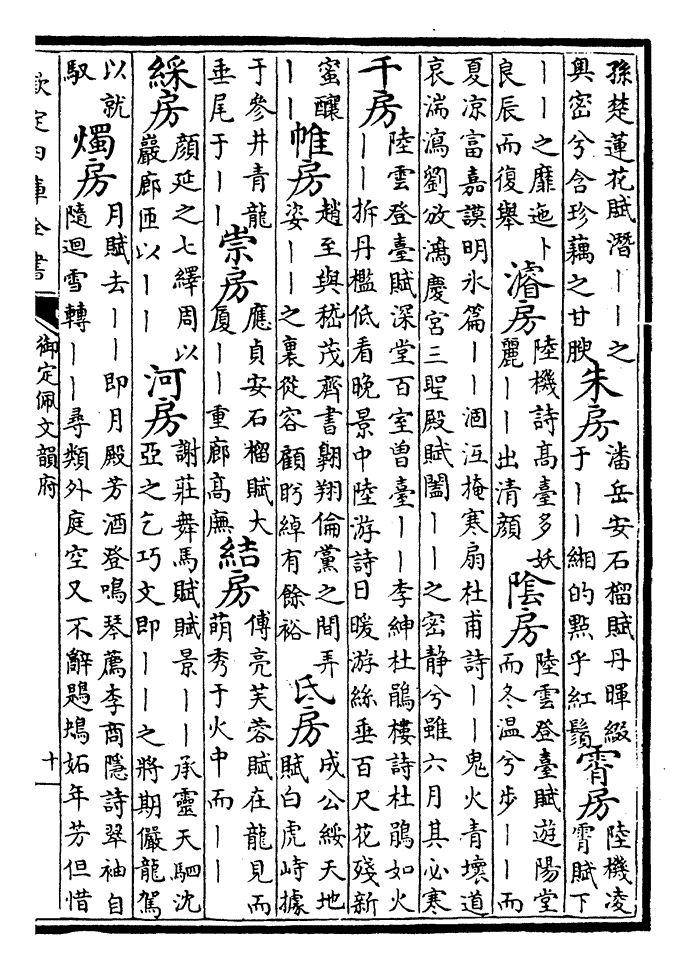 孫楚蓮花賦潛丨丨之
奧密兮含珍藕之甘腴
朱房
潘岳安石榴賦丹暉綴
于丨丨緗的點乎紅鬚
霄房
陸機凌
霄賦下
丨丨之靡迤卜
良辰而復舉
濬房
陸機詩高臺多妖
麗丨丨出清顏
陰房
陸雲登臺賦遊陽堂
而冬温兮步丨丨而
夏凉富嘉謨明氷篇丨丨涸沍掩寒扇杜甫詩丨丨鬼火青壞道
哀湍瀉劉攽鴻慶宮三聖殿賦闔丨丨之密静兮雖六月其必寒
千房
陸雲登臺賦深堂百室曾臺丨丨李紳杜鵑樓詩杜鵑如火
丨丨拆丹檻低看晚景中陸游詩日暖游絲垂百尺花殘新
蜜釀
丨丨
帷房
趙至與嵇茂齊書翺翔倫黨之間弄
姿丨丨之裏從容顧眄綽有餘裕
氐房
成公綏天地
賦白虎峙據
于參井青龍
垂尾于丨丨
崇房
應貞安石榴賦大
厦丨丨重廊高廡
結房
傅亮芙蓉賦在龍見而
萌秀于火中而丨丨
綵房
顔延之七繹周以
巖廊匝以丨丨
河房
謝莊舞馬賦賦景丨丨承靈天駟沈
亞之乞巧文即丨丨之將期儼龍駕
以就
馭
燭房
月賦去丨丨即月殿芳酒登鳴琴薦李商隱詩翠袖自
隨迴雪轉丨丨尋類外庭空又不辭鶗鴂妬年芳但惜
欽定四庫全書
御定佩文韻府
十